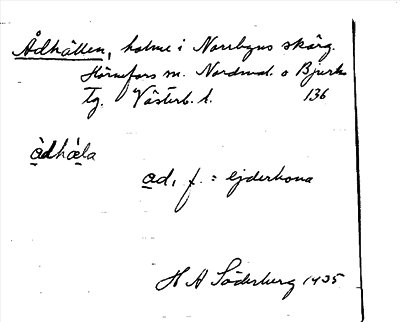 Ådhällen, holme i Norrbyns skärg.
Hörnefors sn. Nordmal. o Bjurh.
tg. Västerb. l. 136
ȧdhȧla
ad, f. = ejderhona
H A Söderberg 1935